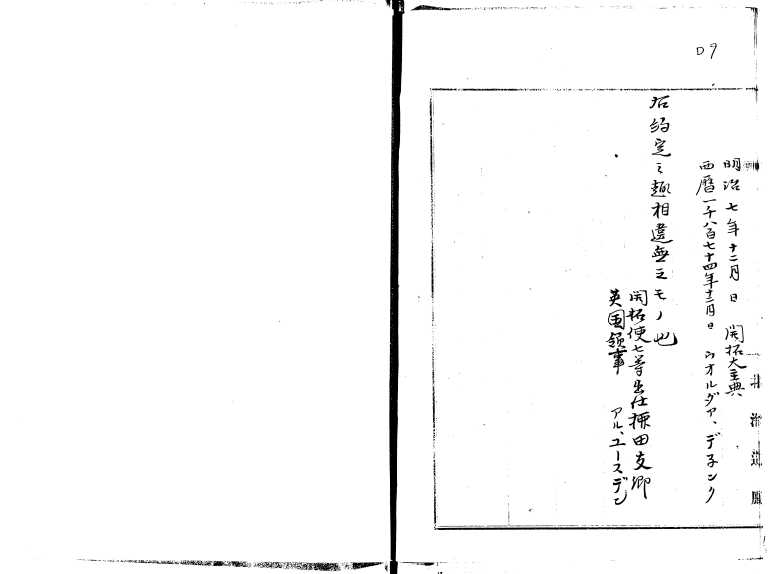 D9
明治七年十二月 日 開拓大主典
西暦一千八百七十四年十二月 日 ウオルダァ、デネンク
右約定之趣相違無之モノ也
開拓使七等出仕 田友郷
英国領事 アル、ユースデン